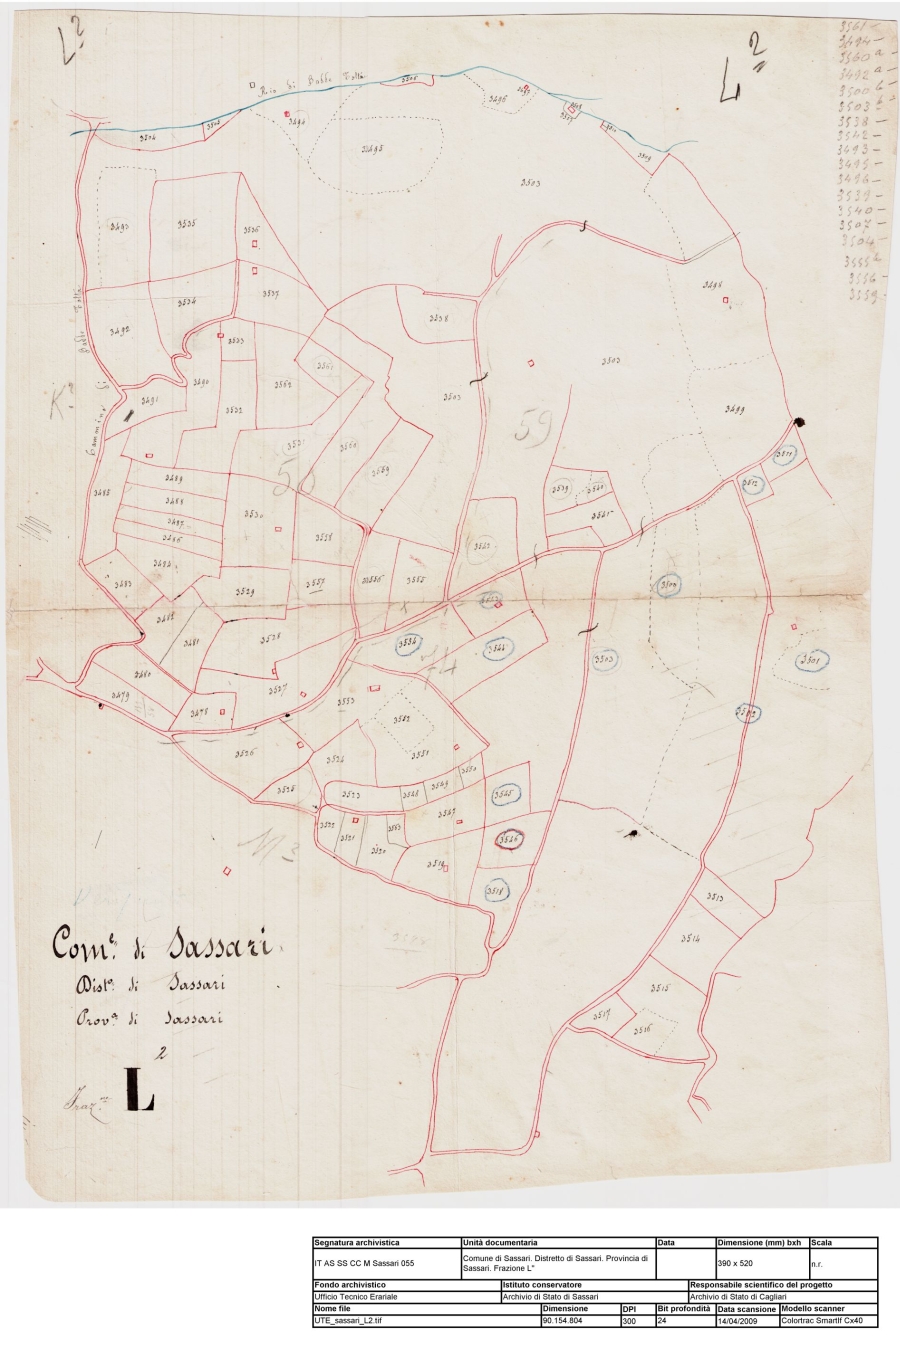 L²
L²
3561 -
3494 -
3560 a -
3492 a -
3500 b -
3503 b -
3538 -
3542 -
3493 -
3495 -
3496 -
3539 -
3540 -
3507 -
3504 -
3555 b
3556 -
3559 -
Rio di Badde Tolta
3506
3504
3505
3494
3495
3496
3497
3509
3503
3493
3535
3536
3498
3492
3534
3537
3538
3503
3533
3561
3562
3503
3499
3491
3490
3532
3531
3560
3559
59
K²
Cammino di Badde Tolta
3511
3512
3485
3489
3488
3487
3486
3530
3539
3540
3541
3558
3542
3484
3483
3529
3557
3556
3555
3482
3481
3528
3554
3544
3503
3501
3480
3479
3478
3527
3553
3552
3502
3526
3524
3551
3525
3523
3548
3549
3550
3545
3522
3521
3520
3563
3547
3546
3519
3518
3513
3514
3515
3517
3516
Com.e di Sassari
Dist.o di Sassari
Prov.a di Sassari
Fraz.ne L²
Segnatura archivistica
Unità documentaria
Data
Dimensione (mm) bxh
Scala
IT AS SS CC M Sassari 055
Comune di Sassari. Distretto di Sassari. Provincia di
Sassari. Frazione L"
390 x 520
n.r.
Fondo archivistico
Istituto conservatore
Responsabile scientifico del progetto
Ufficio Tecnico Erariale
Archivio di Stato di Sassari
Archivio di Stato di Cagliari
Nome file
Dimensione
DPI
Bit profondità
Data scansione
Modello scanner
UTE_sassari_L2.tif
90.154.804
300
24
14/04/2009
Colortrac Smartlf Cx40